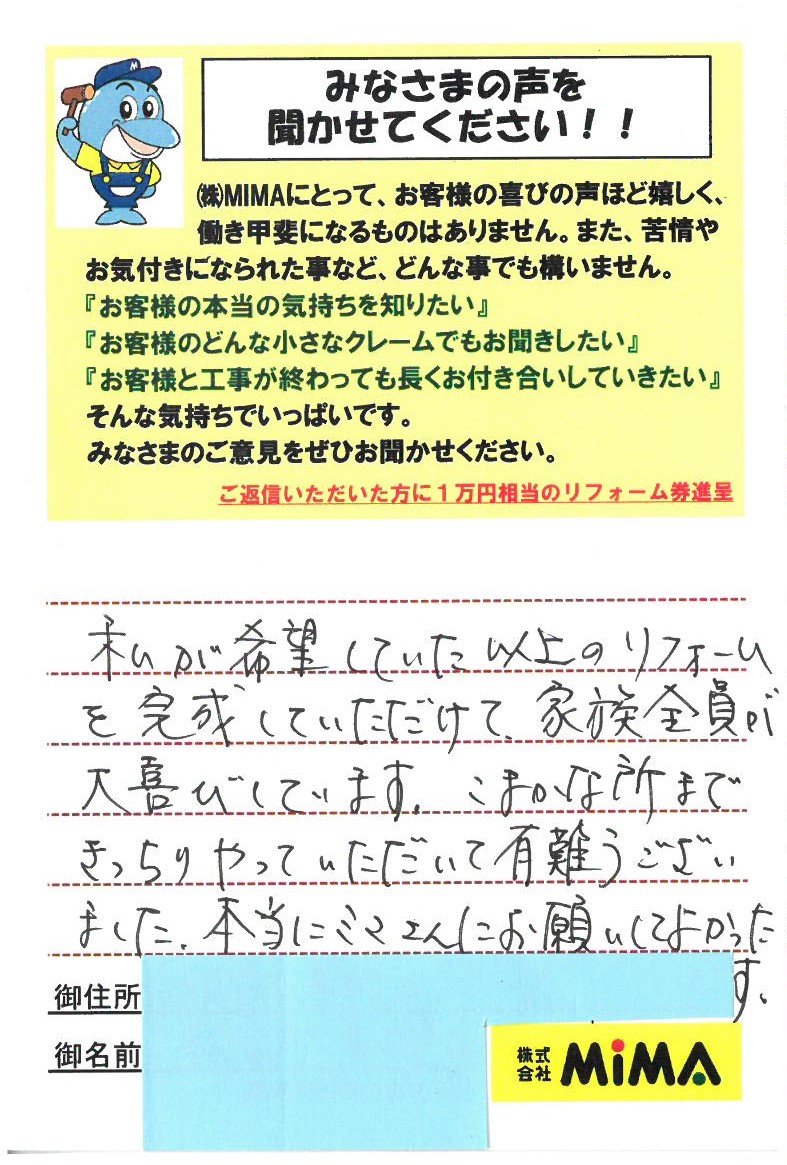 みなさまの声を
聞かせてください！！
㈱MIMAにとって、お客様の喜びの声ほど嬉しく、
働き甲斐になるものはありません。また、苦情や
お気付きになられた事など、どんな事でも構いません。
『お客様の本当の気持ちを知りたい』
『お客様のどんな小さなクレームでもお聞きしたい』
『お客様と工事が終わっても長くお付き合いしていきたい』
そんな気持ちでいっぱいです。
みなさまのご意見をぜひお聞かせください。
ご返信いただいた方に１万円相当のリフォーム券進呈
私が希望していた以上のリフォーム
を完成していただけて、家族全員が
大喜びしています。こまかな所まで
きっちりやっていただいて有難うござい
ました。本当にミマさんにお願いしてよかった
す。
御住所
御名前
株式会社 MiMA